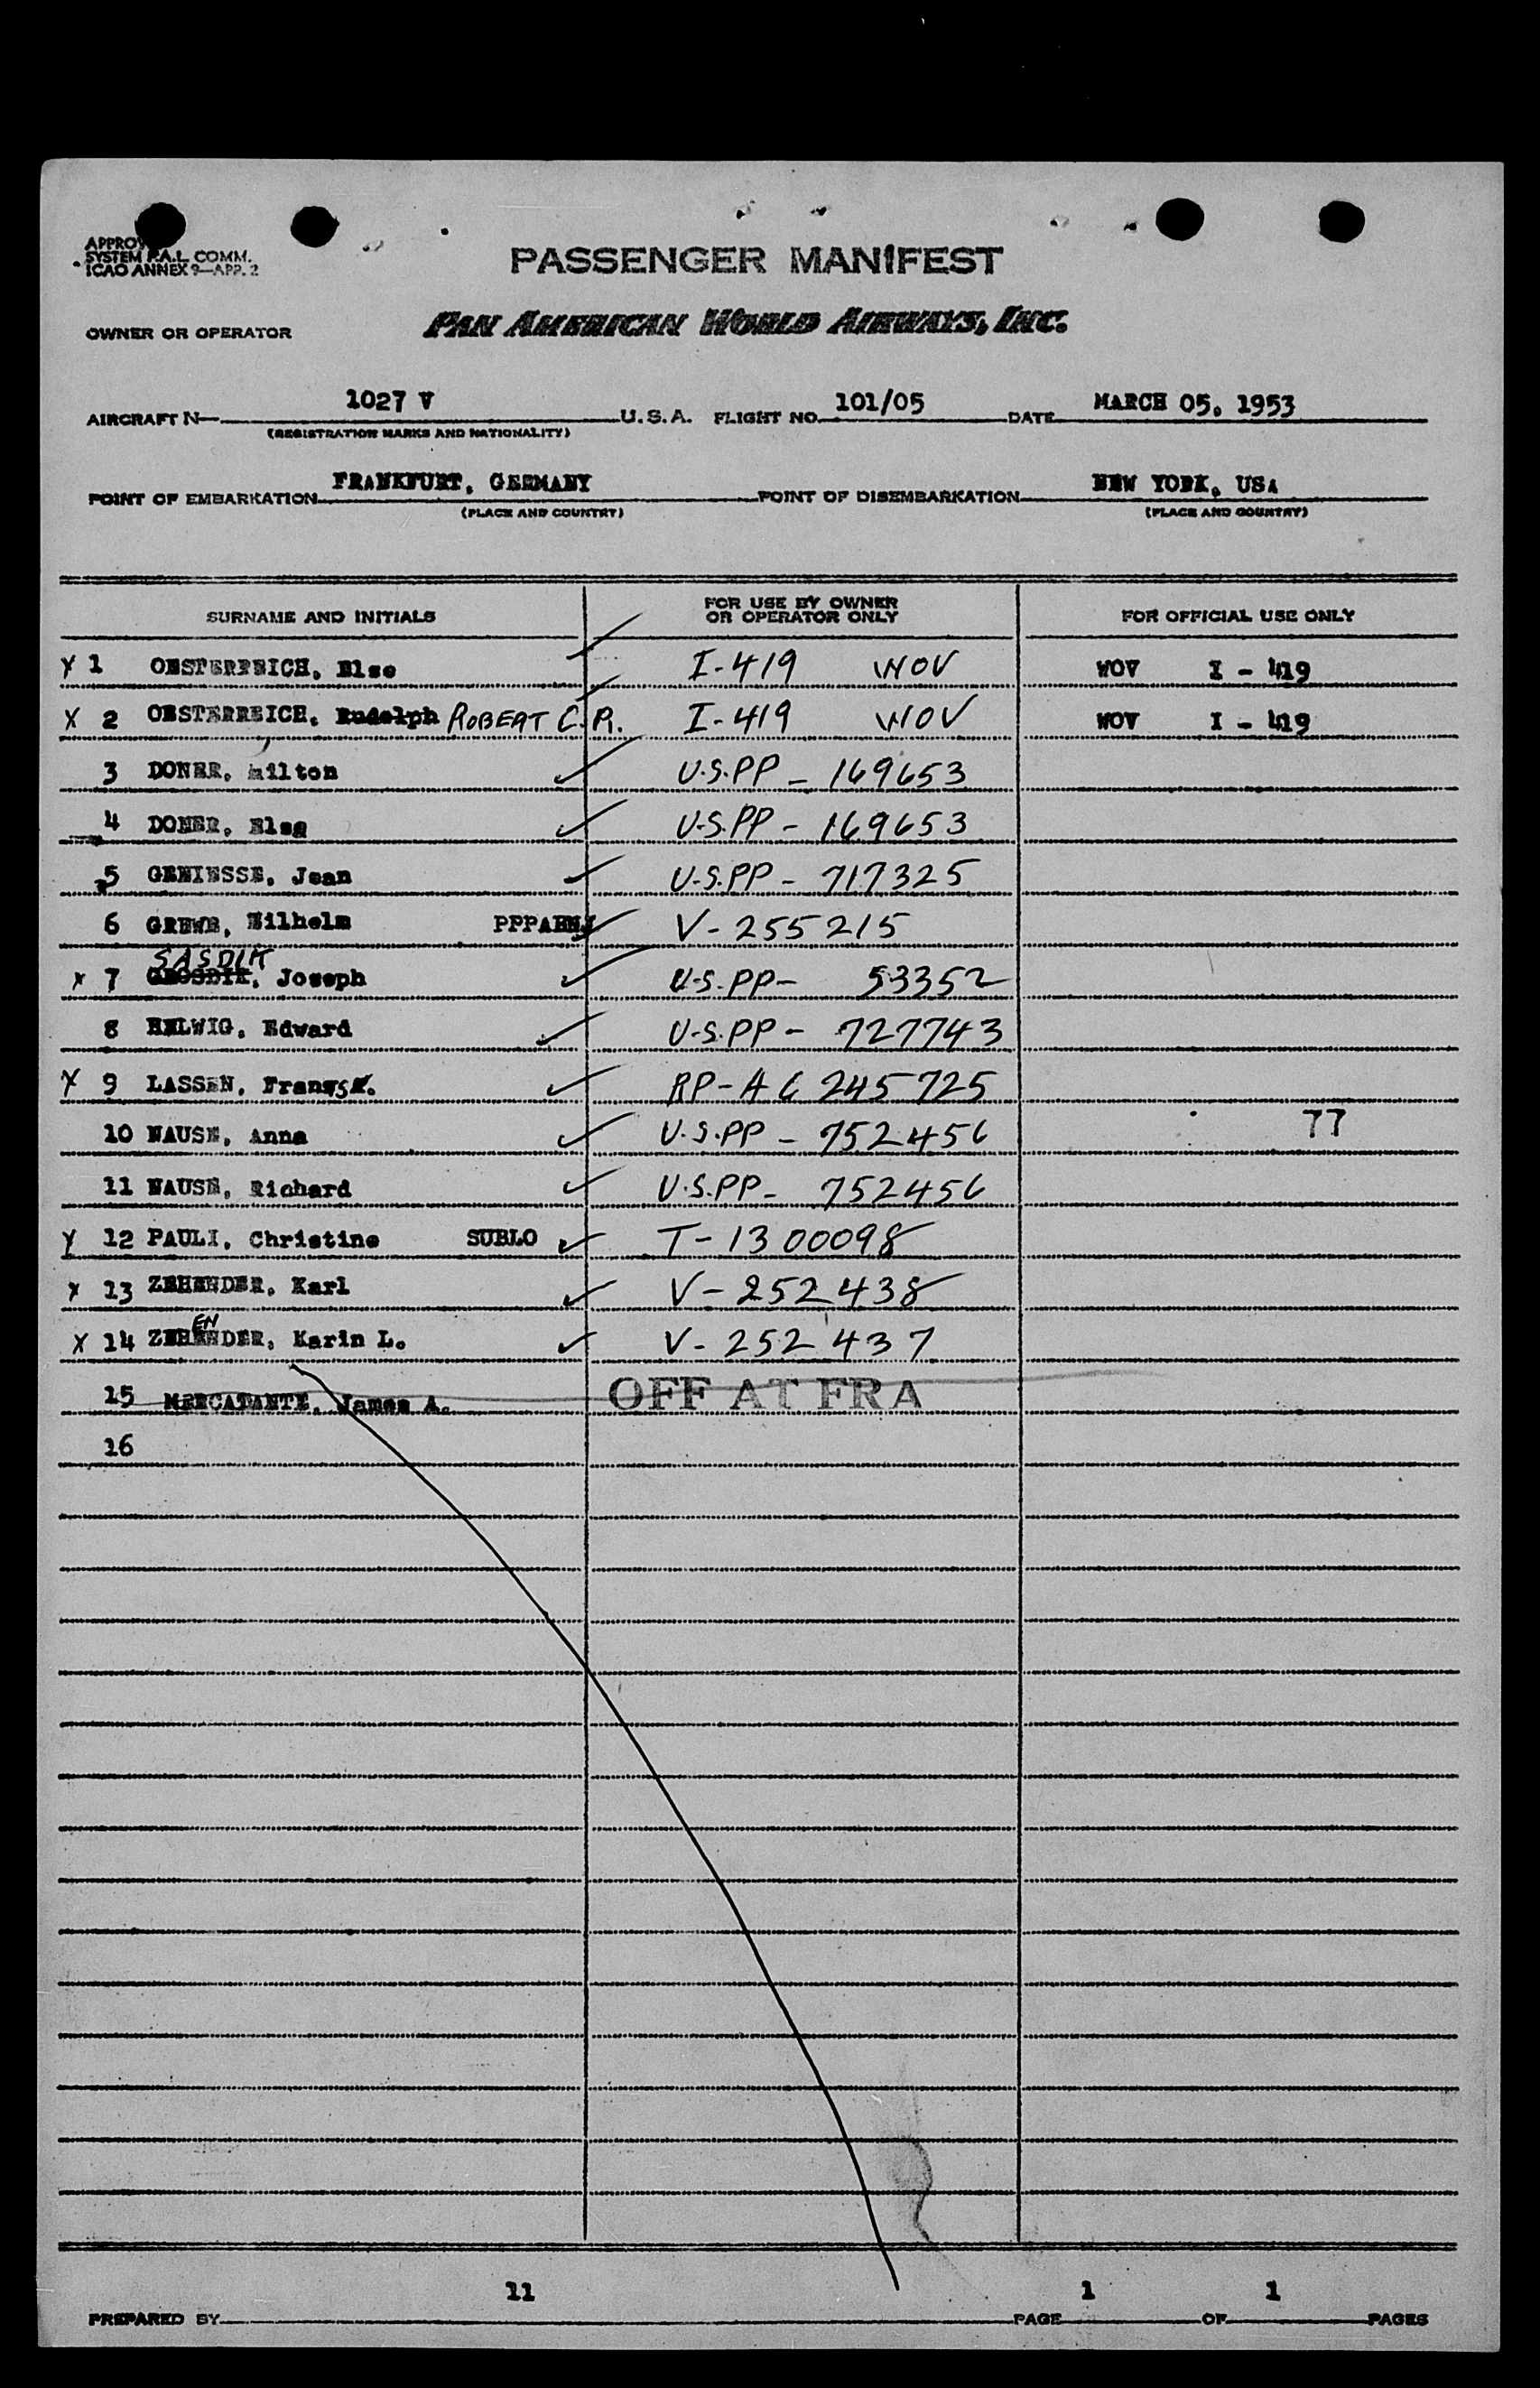 SYSTEM P.A.L. COMM.
ICAO ANNEX 9—APP. 2
PASSENGER MANIFEST
OWNER OR OPERATOR PAN AMERICAN WORLD AIRWAYS, INC.
AIRCRAFT N— 1027 V U.S.A. FLIGHT NO. 101/05 DATE MARCH 05, 1953
(REGISTRATION MARKS AND NATIONALITY)
POINT OF EMBARKATION FRANKFURT, GERMANY POINT OF DISEMBARKATION NEW YORK, USA
(PLACE AND COUNTRY) (PLACE AND COUNTRY)
SURNAME AND INITIALS FOR USE BY OWNER OR OPERATOR ONLY FOR OFFICIAL USE ONLY
X 1 OESTERREICH, Else I-419 WOV WOV I - 419
X 2 OESTERREICH, Rudolph ROBERT C.R. I-419 WOV WOV I - 419
3 DONER, Milton U.S.PP - 169653
4 DONER, Elsa U.S.PP - 169653
5 GENIESSE, Jean U.S.PP - 717325
6 GREWE, Wilhelm V - 255215
SASDIK
X 7 Joseph U.S.PP- 53352
8 HELWIG, Edward U.S.PP - 727743
X 9 LASSEN, RP-A 6 245725
10 NAUSE, Anna U.S.PP - 752456 77
11 NAUSE, Richard U.S.PP - 752456
X 12 PAULI, Christine SUBLO T-1300098
X 13 ZEHENDER, Karl V-252438
EN
X 14 ZEHENDER, Karin L. V-252437
15 MERCADANTE, James A. OFF AT FRA
16
11 1 1
PREPARED BY PAGE OF PAGES